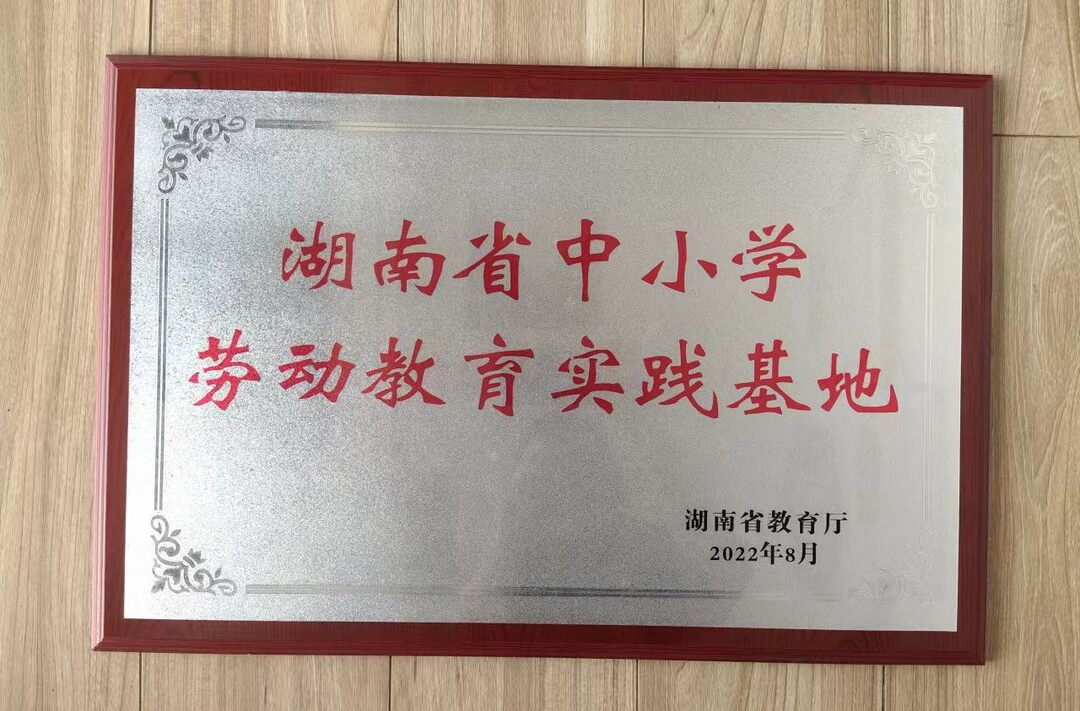 湖南省中小学
劳动教育实践基地
湖南省教育厅
2022年8月